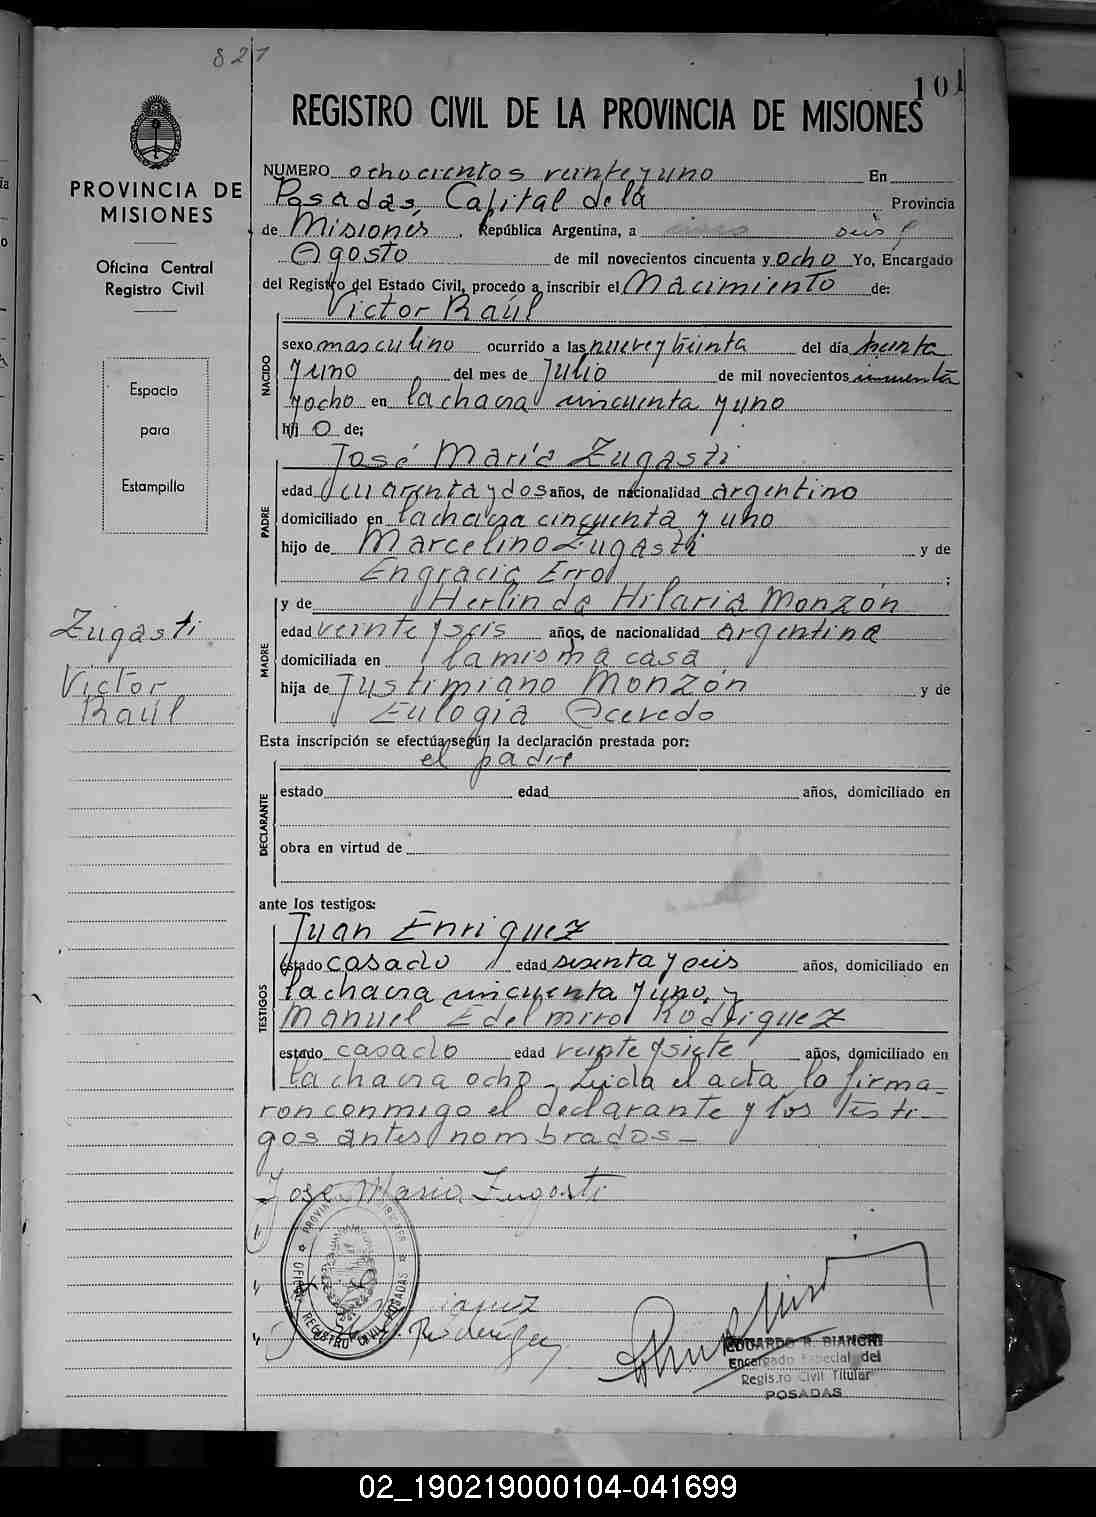 821
101
REGISTRO CIVIL DE LA PROVINCIA DE MISIONES
PROVINCIA DE
MISIONES
Oficina Central
Registro Civil
Espacio
para
Estampilla
Zugasti
Victor
Raúl
NUMERO ochocientos veinte y uno En
Posadas, Capital de la Provincia
de Misiones. República Argentina, a seis de
Agosto de mil novecientos cincuenta y ocho Yo, Encargado
del Registro del Estado Civil, procedo a inscribir el Nacimiento de:
Victor Raúl
NACIDO
sexo masculino ocurrido a las nueve y treinta del día treinta
y uno del mes de Julio de mil novecientos cincuenta
y ocho en la chacra cincuenta y uno
hij o de:
José María Zugasti
PADRE
edad cuarenta y dos años, de nacionalidad argentino
domiciliado en la chacra cincuenta y uno
hijo de Marcelino Zugasti y de
Engracia Erro ;
y de Herlinda Hilaria Monzón
MADRE
edad veinte y seis años, de nacionalidad argentina
domiciliada en la misma casa
hija de Justimiano Monzón y de
Eulogia Acevedo
Esta inscripción se efectúa según la declaración prestada por:
el padre
DECLARANTE
estado edad años, domiciliado en
obra en virtud de
ante los testigos:
Juan Enriquez
TESTIGOS
estado casado edad sesenta y seis años, domiciliado en
la chacra cincuenta y uno, y
Manuel Edelmiro Rodriguez
estado casado edad veinte y siete años, domiciliado en
la chacra ocho - Leida el acta lo firma-
ron conmigo el declarante y los testi-
gos antes nombrados -
Jose Maria Zugasti
OFICINA REGISTRO CIVIL POSADAS
Rodriguez
EDUARDO R. BIANCHI
Encargado Especial del
Registro Civil Titular
POSADAS
02_190219000104-041699